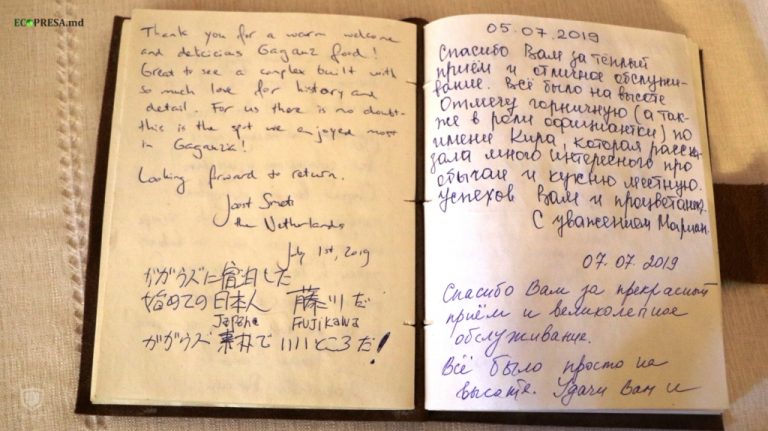 ECOPRESA.md
Thank you for a warm welcome
and delicious Gagauz food!
Great to see a complex built with
so much love for history and
detail. For us there is no doubt-
this is the spot we enjoyed most
in Gagauzia!
Looking forward to return.
Joost Smets
the Netherlands
July 1st, 2019
ガガウズに宿泊した
始めての日本人 藤川だ
Japane FUJIKAWA
ガガウズ 素朴で いいところだ!
05.07.2019
Спасибо Вам за тёплый
приём и отличное обслужи-
вание. Всё было на высоте
Отмечу горничную (а так-
же в роли официантки) по
имени Кира, которая расска-
зала много интересного про
обычаи и кухню местную.
Успехов Вам и процветания.
С уважением Мариан.
07.07.2019
Спасибо Вам за прекрасный
приём и великолепное
обслуживание.
Всё было просто на
высоте. Удачи Вам и